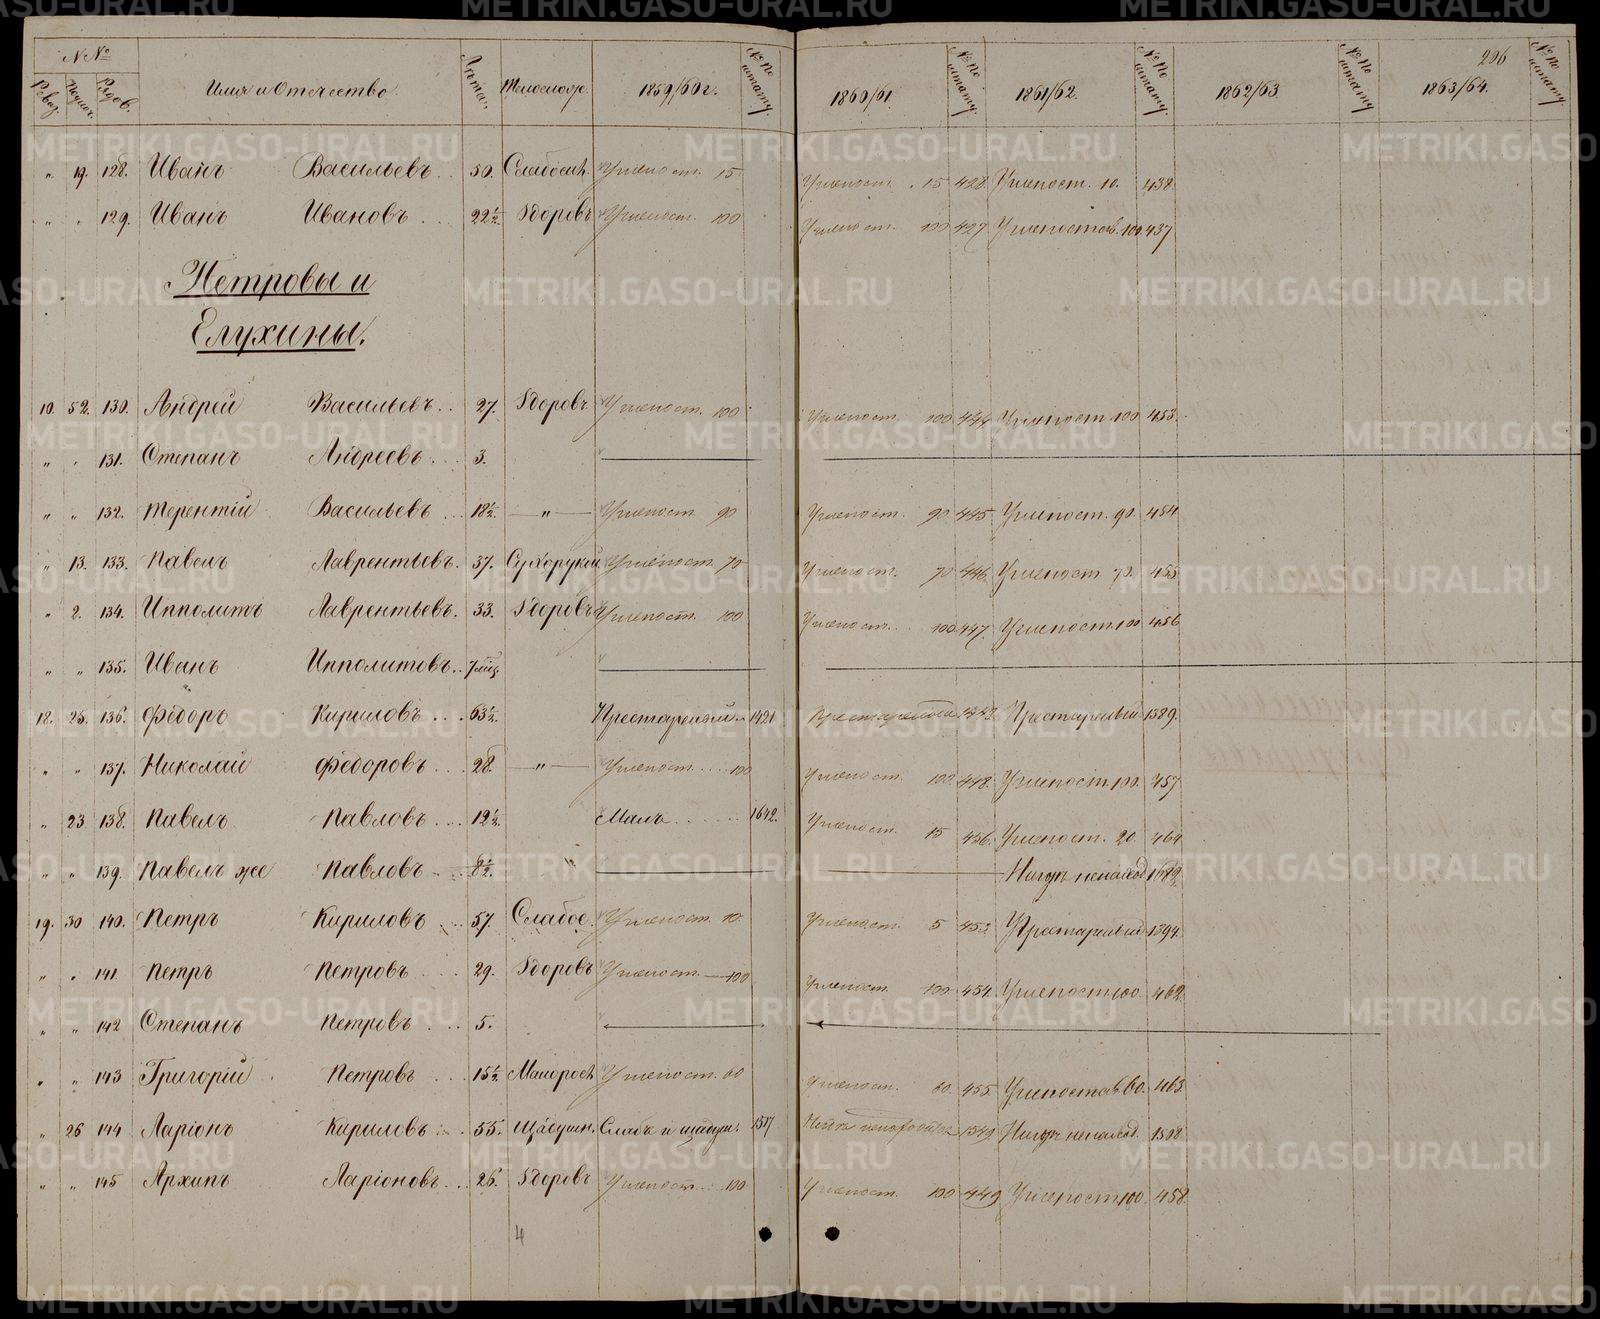 №№ Имя и Отчество Лѣта. Тѣлослож. 1859/60 г. № по штату 1860/61. № по штату 1861/62. № по штату 1862/63 № по штату 1863/64. № по штату 206
" 19. 128. Иванъ Васильевъ.. 50. Слабосил. Углепост. 15 Углепост. 15 428 Углепост. 10. 438
" " 129. Иванъ Ивановъ... 22½ Здоровъ Углепост. 100 Углепост. 100 427 Углепостав. 100 437
Петровы и
Елухины.
10. 52. 130. Андрей Васильевъ.. 27. Здоровъ Углепост. 100 Углепост. 100 444 Углепост. 100 453.
" " 131. Степанъ Андреевъ... 3.
" " 132. Терентiй Васильевъ... 18½. — " — Углепост. 90 Углепост. 90 445 Углепост. 90. 454
" 13. 133. Павелъ Лаврентьевъ. 37. Сухорукiй Углепост. 70 Углепост. 70 446. Углепост 70. 455
" 2. 134. Ипполитъ Лаврентьевъ. 33. Здоровъ Углепост. 100 Углепост. 100 447. Углепост. 100 456
" " 135. Иванъ Ипполитовъ.. 7 мѣс.
18. 25. 136. Федоръ Кириловъ... 63½. Престарелый 1421 Престарелый 1443. Престарелый 1389.
" " 137. Николай Федоровъ... 28. — " — Углепост... 100 Углепост. 100 448. Углепост. 100. 457
" 23. 138. Павелъ Павловъ... 12½. Малъ...... 1642. Углепост. 15 456. Углепост. 20. 464
" " 139. Павелъ же Павловъ... 8½. 1689.
19. 30 140. Петръ Кириловъ... 57. Слабое. Углепост. 10. Углепост. 5 453. Престарелый 1394.
" " 141. Петръ Петровъ... 29. Здоровъ Углепост. 100 Углепост. 100 454. Углепост. 100. 462
" " 142 Степанъ Петровъ... 5.
" " 143 Григорiй Петровъ... 15½ Малоросл. Углепост. 60 Углепост. 60. 455. Углепостав. 60. 463.
" 26 144 Ларiонъ Кириловъ.. 55. Щадушн. Слабъ и щадуш. 1517 1549
" " 145 Архипъ Ларiоновъ... 26. Здоровъ Углепост... 100 Углепост. 100 449 Углепост. 100. 458.
4
METRIKI.GASO-URAL.RU